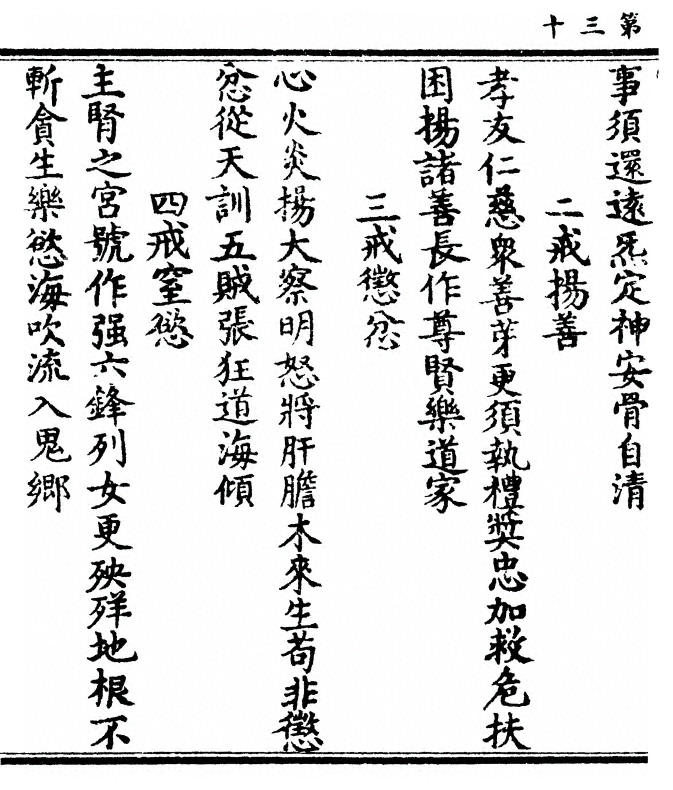 第三十
事須還遠炁定神安骨自清
二戒揚善
孝友仁慈衆善芽更須執禮奬忠加救危扶
困揚諸善長作尊賢樂道家
三戒懲忿
心火炎揚大察明怒將肝膽木來生苟非懲
忿從天訓五賊張狂道海傾
四戒窒慾
主腎之宮號作强六鋒列女更殃殃地根不
斬貪生樂慾海吹流入鬼鄉